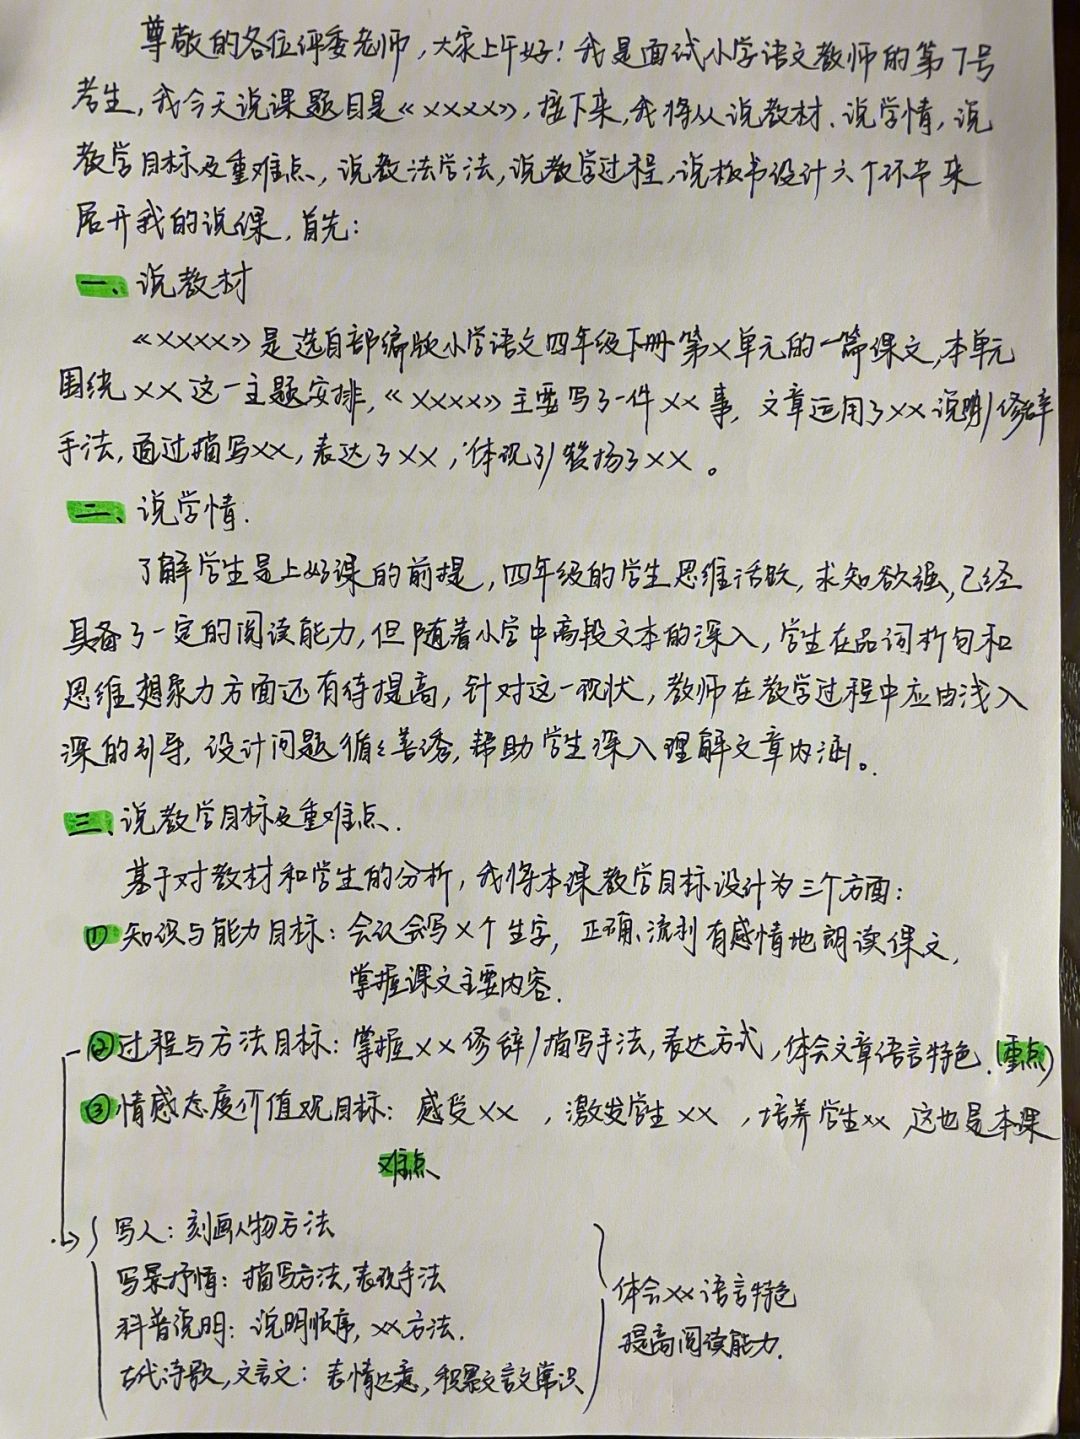 尊敬的各位评委老师，大家上午好！我是面试小学语文教师的第7号
考生，我今天说课题目是《××××》，接下来，我将从说教材、说学情，说
教学目标及重难点，说教法学法，说教学过程，说板书设计六个环节来
展开我的说课，首先：
一、说教材
《××××》是选自部编版小学语文四年级下册第X单元的一篇课文，本单元
围绕××这一主题安排，《××××》主要写了一件××事，文章运用了××说明/修辞
手法，通过描写××，表达了××，体现了/赞扬了××。
二、说学情.
了解学生是上好课的前提，四年级的学生思维活跃，求知欲强，已经
具备了一定的阅读能力，但随着小学中高段文本的深入，学生在品词析句和
思维想象力方面还有待提高，针对这一现状，教师在教学过程中应由浅入
深的引导，设计问题循循善诱，帮助学生深入理解文章内涵。
三、说教学目标及重难点.
基于对教材和学生的分析，我将本课教学目标设计为三个方面：
①知识与能力目标：会认会写X个生字，正确、流利有感情地朗读课文，
掌握课文主要内容.
②过程与方法目标：掌握××修辞/描写手法，表达方式，体会文章语言特色.(重点)
③情感态度价值观目标：感受××，激发学生××，培养学生××，这也是本课
难点
写人：刻画人物方法
写景抒情：描写方法，表现手法
科普说明：说明顺序，××方法.
古代诗歌，文言文：表情达意，积累文言文常识
体会××语言特色
提高阅读能力.